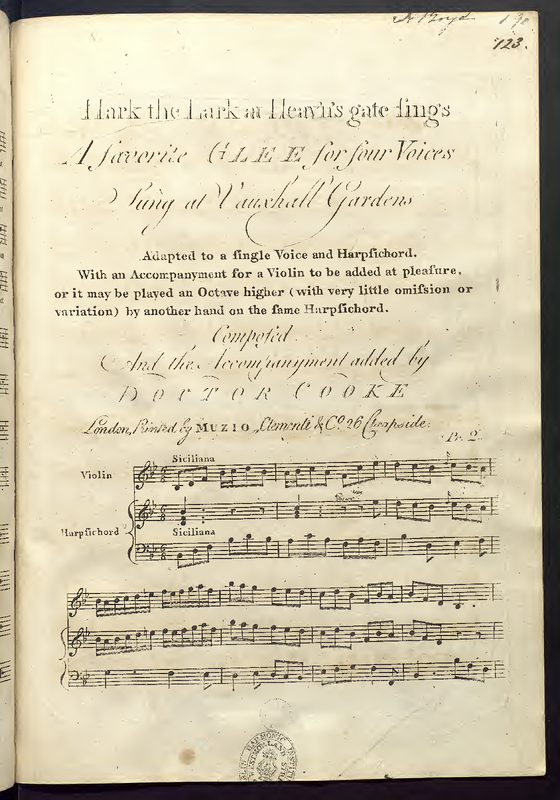 123.
Hark the Lark at Heav'n's gate sings
A favorite GLEE for four Voices
Sung at Vauxhall Gardens
Adapted to a single Voice and Harpsichord.
With an Accompanyment for a Violin to be added at pleasure,
or it may be played an Octave higher (with very little omission or
variation) by another hand on the same Harpsichord.
Composed
And the Accompanyment added by
DOCTOR COOKE
London, Printed by MUZIO Clementi & Co. 26 Cheapside.
Pr. 2
Siciliana
Violin
Harpsichord
Siciliana
HARMONIC INSTI
WESTMORLAND